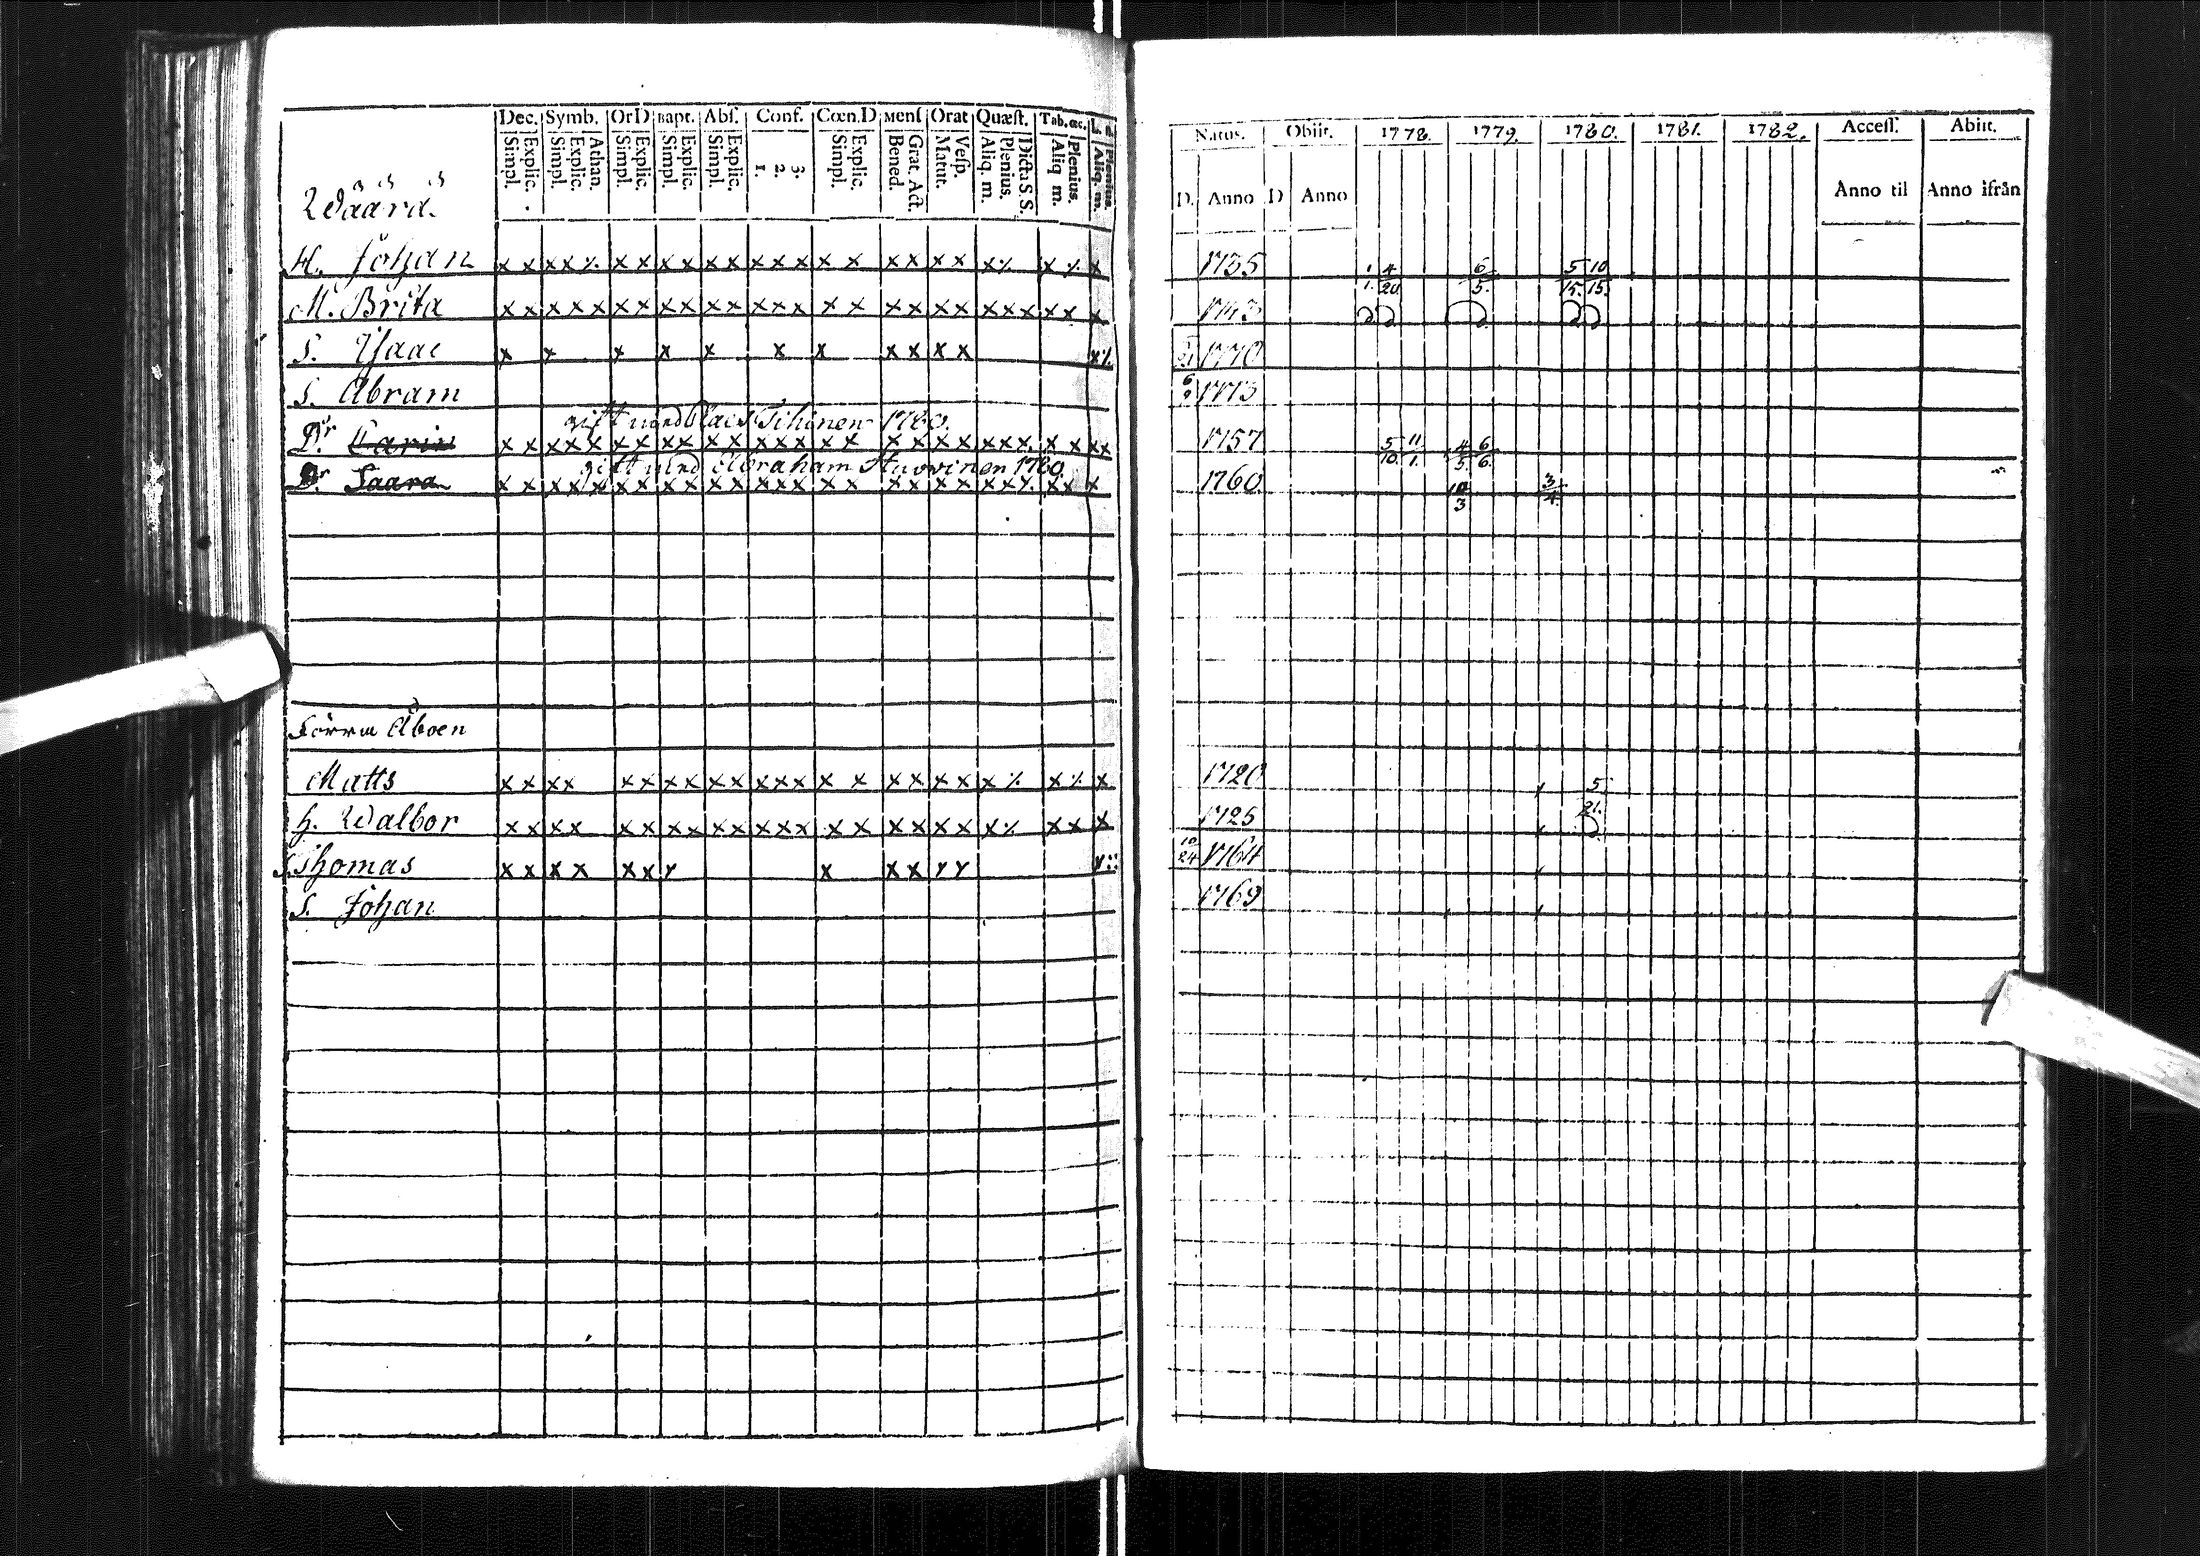 Dec. Symb. OrD Bapt. Abſ. Conf. Cœn.D Menſ Orat Quæſt. Tab.œc. L. n.
Simpl. Explic. Simpl. Explic. Athan. Simpl. Explic. Simpl. Explic. Simpl. Explic. 1. 2. 3. Simpl. Explic. Bened. Grat. Act. Matut. Veſp. Aliq. m. Plenius. Dicta S. S. Aliq m. Plenius. Aliq. m. Plenius.
Natus. Obiit. 1778. 1779. 1780. 1781. 1782. Acceſſ. Abiit.
D. Anno D Anno Anno til Anno ifrån
Wäärä.
H. Johan x x x x ⁒ x x x x x x x x x x x x x x x x ⁒ x ⁒ x 1735 1/1. 4/20 6/5. 5/15. 10/15.
M. Brita x x x x x x x x x x x x x x x x x x x x x x x x x x x 1743
S. Isaac x x x x x x x x x x x x⁒ 21 1770
S. Abram 6/9 1773
gift med Clas Tihinen 1780.
Dr. Carin x x x x x x x x x x x x x x x x x x x x x x. x x x x 1757 5/10. 11/1. 4/5. 6/6.
gift med Abraham Huovinen 1780
Dr. Saara x x x x x x x x x x x x x x x x x x x x x ⁒ x x x 1760 10/3 3/4.
Sörrin Åboen
Matts x x x x x x x x x x x x x x x x x x x x ⁒ x ⁒ x 1720 5/21.
h. Walbor x x x x x x x x x x x x x x x x x x x x ⁒ x x x 1725
S. Thomas x x x x x x x x x x x x 10/24 1764
S. Johan 1769